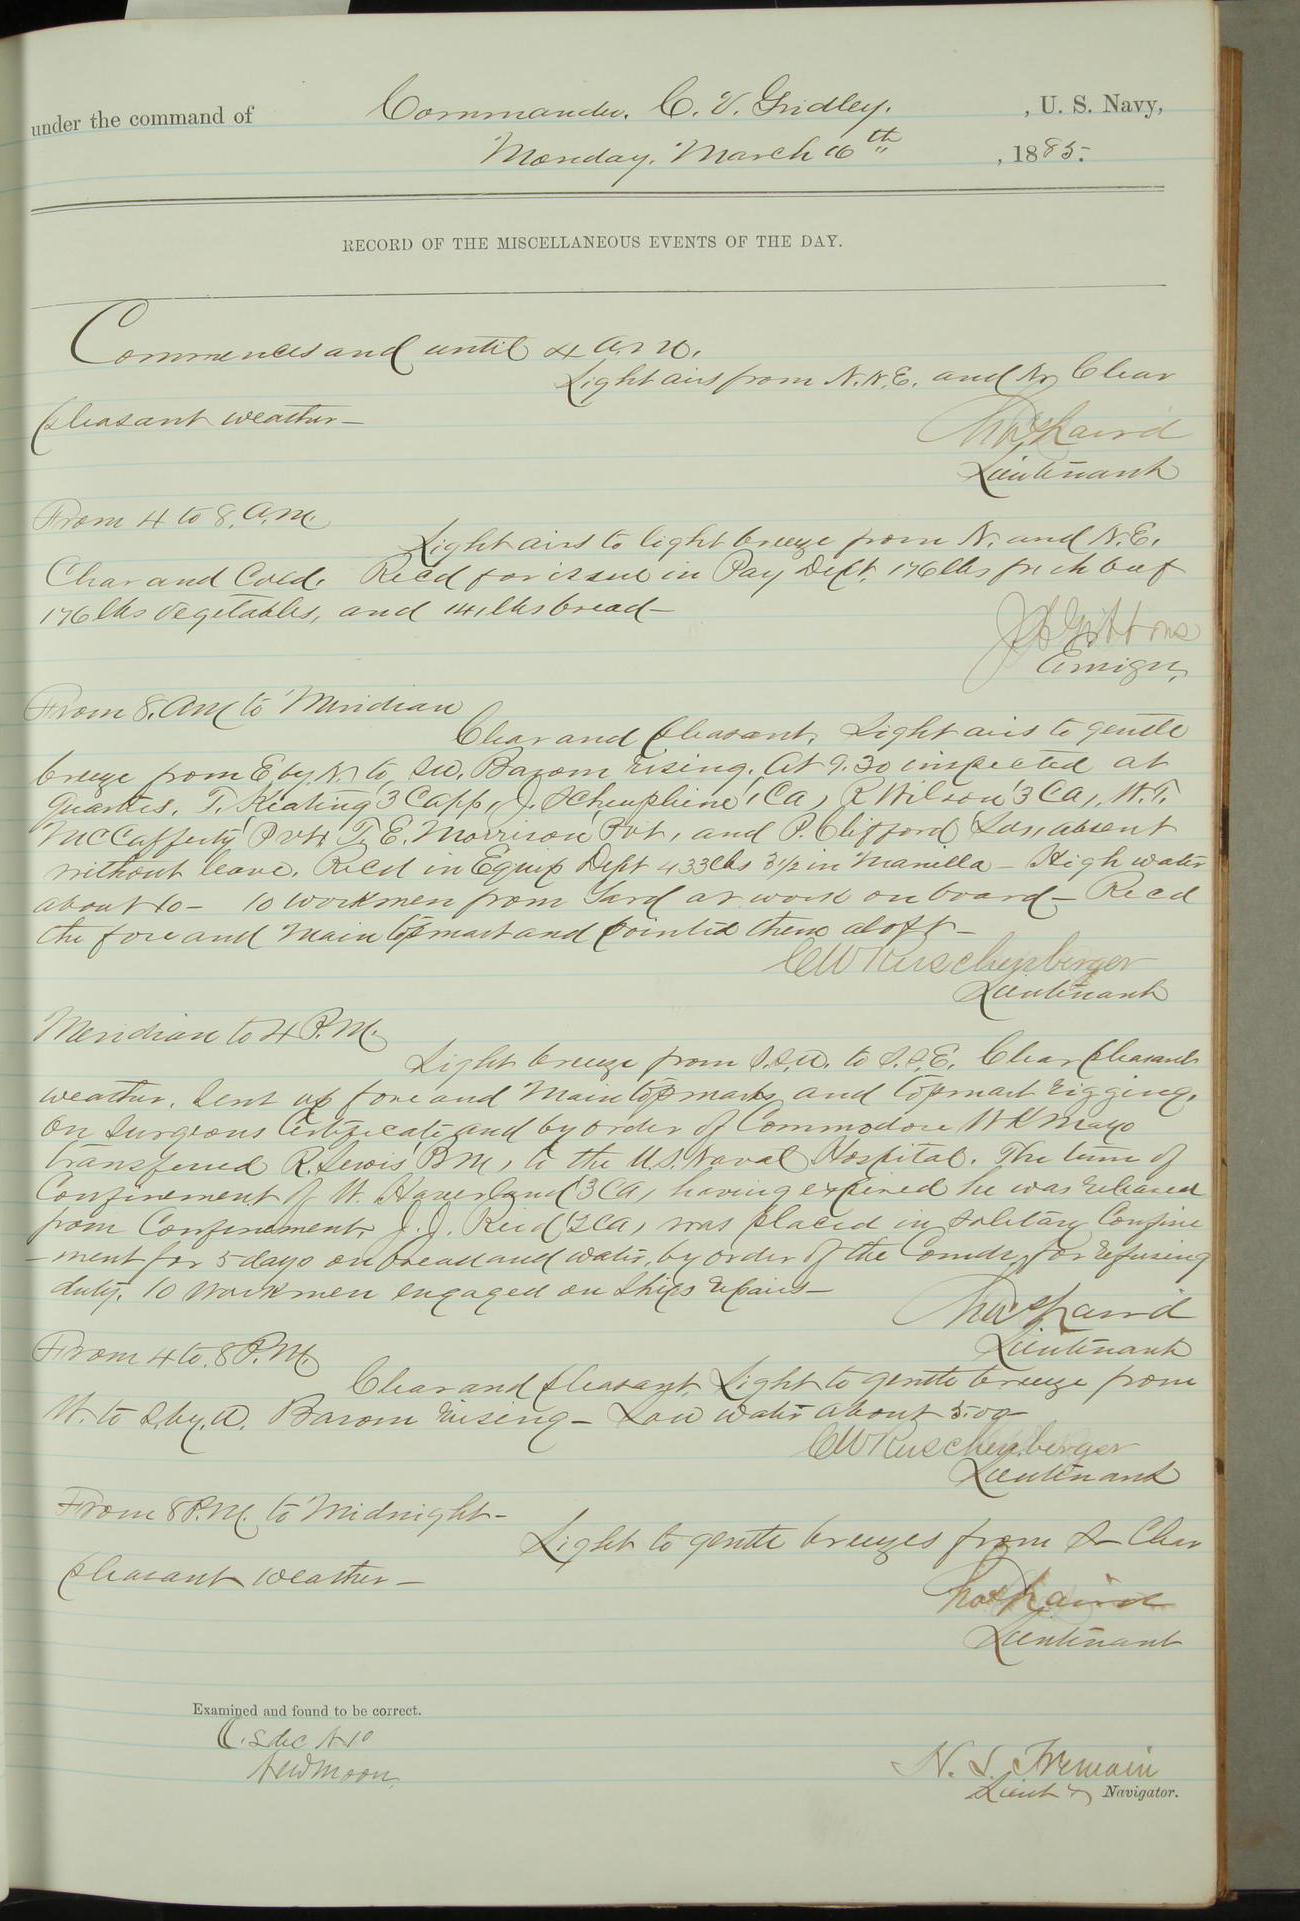 under the command of Commander. C. V. Gridley. , U. S. Navy,
Monday. March 16th , 1885.
RECORD OF THE MISCELLANEOUS EVENTS OF THE DAY.
Commences and until 4 A.M.
Light airs from N.N.E. and N. Clear
pleasant weather—
Laird
Lieutenant
From 4 to 8. A.M.
Light airs to light breeze from N. and N.E.
Clear and Cold. Recd for issue in Pay Dept. 176 lbs fresh beef
176 lbs vegetables, and 141 lbs bread—
J H Gibbons
Ensign,
From 8. AM to Meridian
Clear and pleasant. Light airs to gentle
breeze from E by N. to SW. Barom rising. At 9.30 inspected at
quarters. T. Keating (3 C app), J. Scheuphine (1 Ca), R Wilson (3 Ca), W. T.
McCafferty (Pvt), T. E. Morrison (Pvt), and P. Clifford (Lds), absent
without leave. Recd in Equip Dept 433 lbs 3 1/2 in Manilla — High water
about 10 — 10 workmen from Yard at work on board — Recd
the fore and Main topmast and pointed them aloft —
C W Ruschenberger
Lieutenant
Meridian to 4 P.M.
Light breeze from S.S.W. to S.S.E. Clear pleasant
weather. Sent up fore and Main topmasts, and topmast rigging.
On Surgeons Certificate and by order of Commodore W K Mayo
transferred R. Lewis (BM), to the U.S. Naval Hospital. The term of
Confinement of W. Haverland (3 Ca), having expired he was released
from Confinement. J. J. Reid (2 Ca), was placed in solitary Confine
-ment for 5 days on bread and water, by order of the Comdr, for refusing
duty. 10 Workmen engaged on Ships repairs—
Laird
Lieutenant
From 4 to 8 P.M.
Clear and pleasant. Light to gentle breeze from
W. to S. by W. Barom rising — Low water about 5.00—
C W Ruschenberger
Lieutenant
From 8 P.M. to Midnight—
Light to gentle breezes from S — Clear
pleasant weather —
Laird
Lieutenant
Examined and found to be correct.
New moon
Lieut & Navigator.